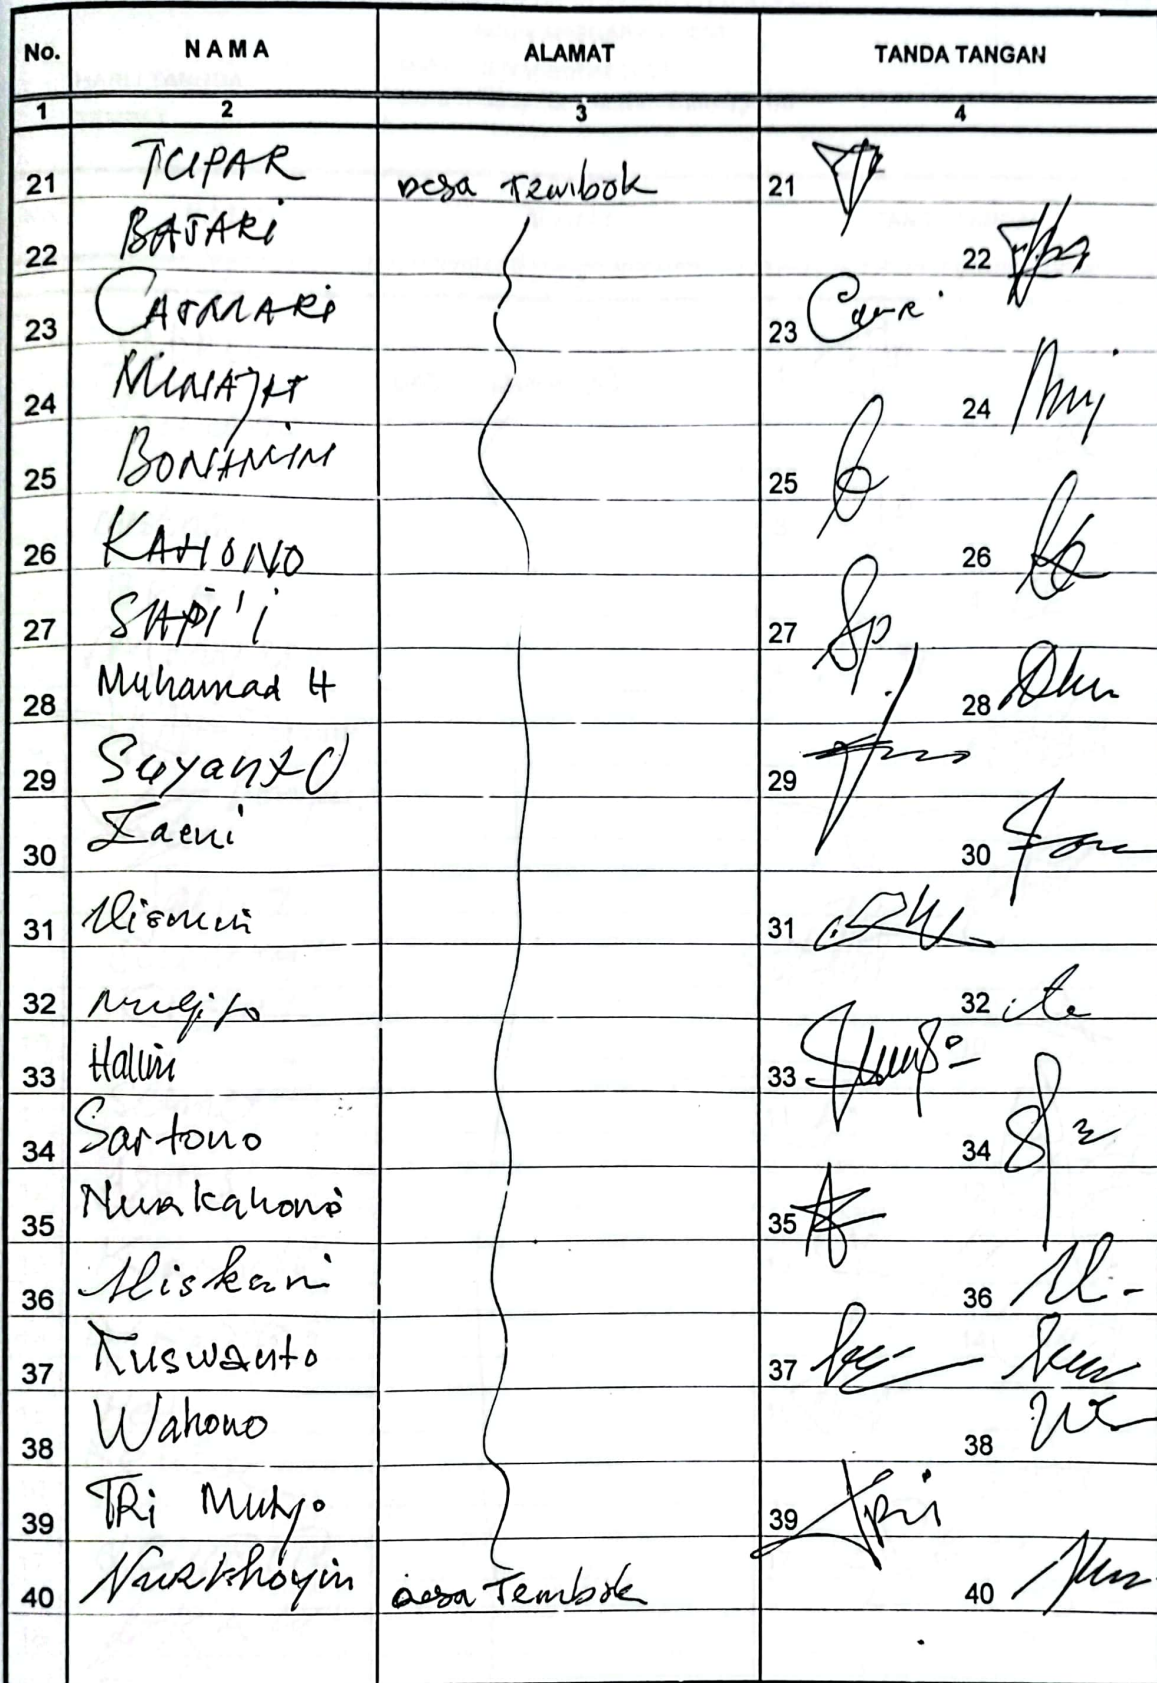 No. NAMA ALAMAT TANDA TANGAN
1 2 3 4
21 TCIPAR Desa Tembok 21
22 BAJARI 22
23 CASMARI 23
24 24
25 BONAMIN 25
26 KAHONO 26
27 SAPI'I 27
28 Muhamad H 28
29 Suyanto 29
30 Zaeni 30
31 31
32 Mugito 32
33 Halim 33
34 Sartono 34
35 Nurkahono 35
36 Miskani 36
37 Kuswanto 37
38 Wahono 38
39 TRi Mulyo 39 Tri
40 Nurkhoyin desa Tembok 40